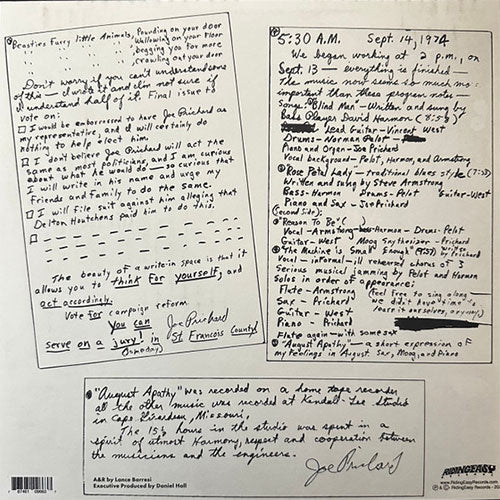 Beasties Furry little Animals, Pounding on your door
Wallowing on your floor
Begging you for more
crawling out your door
Don't worry if you can't understand some
of this — I wrote it and I'm not sure if
I understand half of it. Final issue to
vote on:
I would be embarrassed to have Joe Prichard as
my representative, and I will certainly do
nothing to help elect him.
I don't believe Joe Prichard will act the
same as most politicians, and I am curious
about what he would do — so curious that
I will write in his name and urge my
Friends and family to do the same.
I will file suit against him alleging that
Delton Houtchens paid him to do this.
The beauty of a write-in space is that it
allows you to think for yourself, and
act accordingly.
Vote for campaign reform
You can
serve on a jury! in St. Francois County
(someday)
Joe Prichard
5:30 A.M. Sept. 14, 1974
We began working at 2 p.m., on
Sept. 13 — everything is finished —
The music now seems so much more
important than these program notes —
Songs: "Blind Man" — Written and sung by
Bass Player David Harmon (8:58)
Lead Guitar — Vincent West
Drums — Norman Pelot
Piano and Organ — Joe Prichard
Vocal background — Pelot, Harmon, and Armstrong
Rose Petal Lady — traditional blues style (7:38)
Written and sung by Steve Armstrong
Bass — Harmon Drums — Pelot Guitar — West
Piano and Sax — Joe Prichard
(second side):
"Reason To Be" ( )
Vocal — Armstrong Bass — Harmon — Drums — Pelot
Guitar — West Moog Synthesizer — Prichard
"The Machine is Small Enough" (7:51) Written by Prichard
Vocal — informal — ill rehearsed chorus of 3
Serious musical jamming by Pelot and Harmon
Solos in order of appearance:
Flute — Armstrong
Sax — Prichard
Guitar — West
Piano — Prichard
(feel free to sing along —
we didn't have time to
learn it ourselves, anyway)
Flute again — with some sax
"August Apathy" — a short expression of
my feelings in August. Sax, Moog, and Piano
"August Apathy" was recorded on a home tape recorder
all the other music was recorded at Kendall-Lee Studio
in Cape Girardeau, Missouri.
The 15½ hours in the studio was spent in a
spirit of utmost Harmony, respect and cooperation between
the musicians and the engineers.
Joe Prichard
A&R by Lance Barresi
Executive Produced by Daniel Hall
RIDINGEASY
RECORDS
www.RidingEasyRecords.com